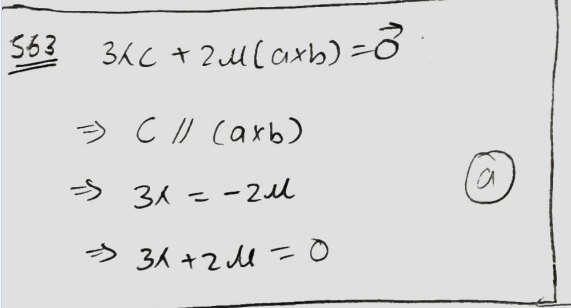 563 3λc + 2μ(a×b) = \vec{0}
⇒ c // (a×b)
⇒ 3λ = -2μ
a
⇒ 3λ + 2μ = 0